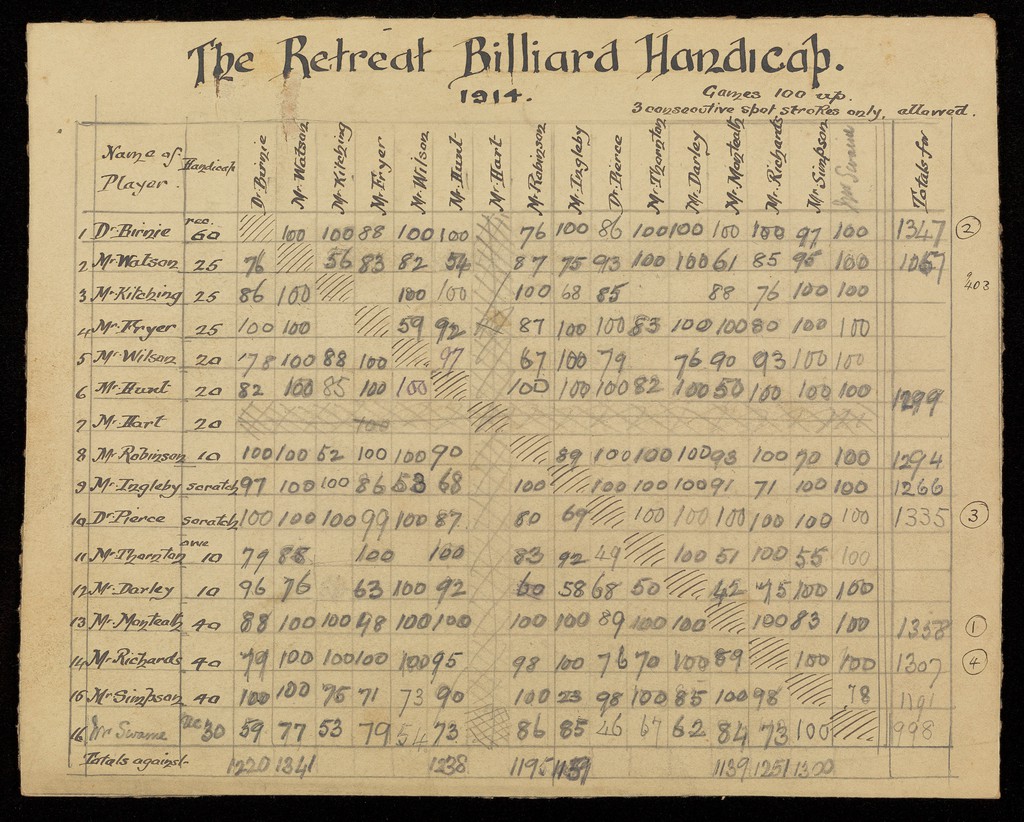 The Retreat Billiard Handicap.
1914.
Games 100 up.
3 consecutive spot strokes only, allowed.
Name of Player. Handicap Dr Birnie Mr Watson Mr Kitching Mr Fryer Mr Wilson Mr Hunt Mr Hart Mr Robinson Mr Ingleby Dr Pierce Mr Thornton Mr Darley Mr Monteath Mr Richards Mr Simpson Mr Swaine Totals for
1 Dr Birnie rec. 60 100 100 88 100 100 76 100 86 100 100 100 100 97 100 1347 2
2 Mr Watson 25 76 56 83 82 54 87 75 93 100 100 61 85 95 100 1057
3 Mr Kitching 25 86 100 100 100 100 68 85 88 76 100 100 403
4 Mr Fryer 25 100 100 59 92 87 100 100 83 100 100 80 100 100
5 Mr Wilson 20 78 100 88 100 97 67 100 79 76 90 93 100 100
6 Mr Hunt 20 82 100 85 100 100 100 100 100 82 100 50 100 100 100 1299
7 Mr Hart 20 100
8 Mr Robinson 10 100 100 52 100 100 90 89 100 100 100 93 100 70 100 1294
9 Mr Ingleby scratch 97 100 100 86 53 68 100 100 100 100 91 71 100 100 1266
10 Dr Pierce scratch 100 100 100 99 100 87 80 69 100 100 100 100 100 100 1335 3
11 Mr Thornton owe 10 79 88 100 100 83 92 49 100 51 100 55 100
12 Mr Darley 10 96 76 63 100 92 60 58 68 50 42 75 100 100
13 Mr Monteath 40 88 100 100 98 100 100 100 100 89 100 100 100 83 100 1358 1
14 Mr Richards 40 79 100 100 100 100 95 98 100 76 70 100 89 100 100 1307 4
15 Mr Simpson 40 100 100 76 71 73 90 100 23 98 100 85 100 98 78 1191
16 Mr Swaine rec 30 59 77 53 79 54 73 86 85 46 67 62 84 73 100 998
Totals against 1220 1341 1238 1195 1139 1139 1251 1300